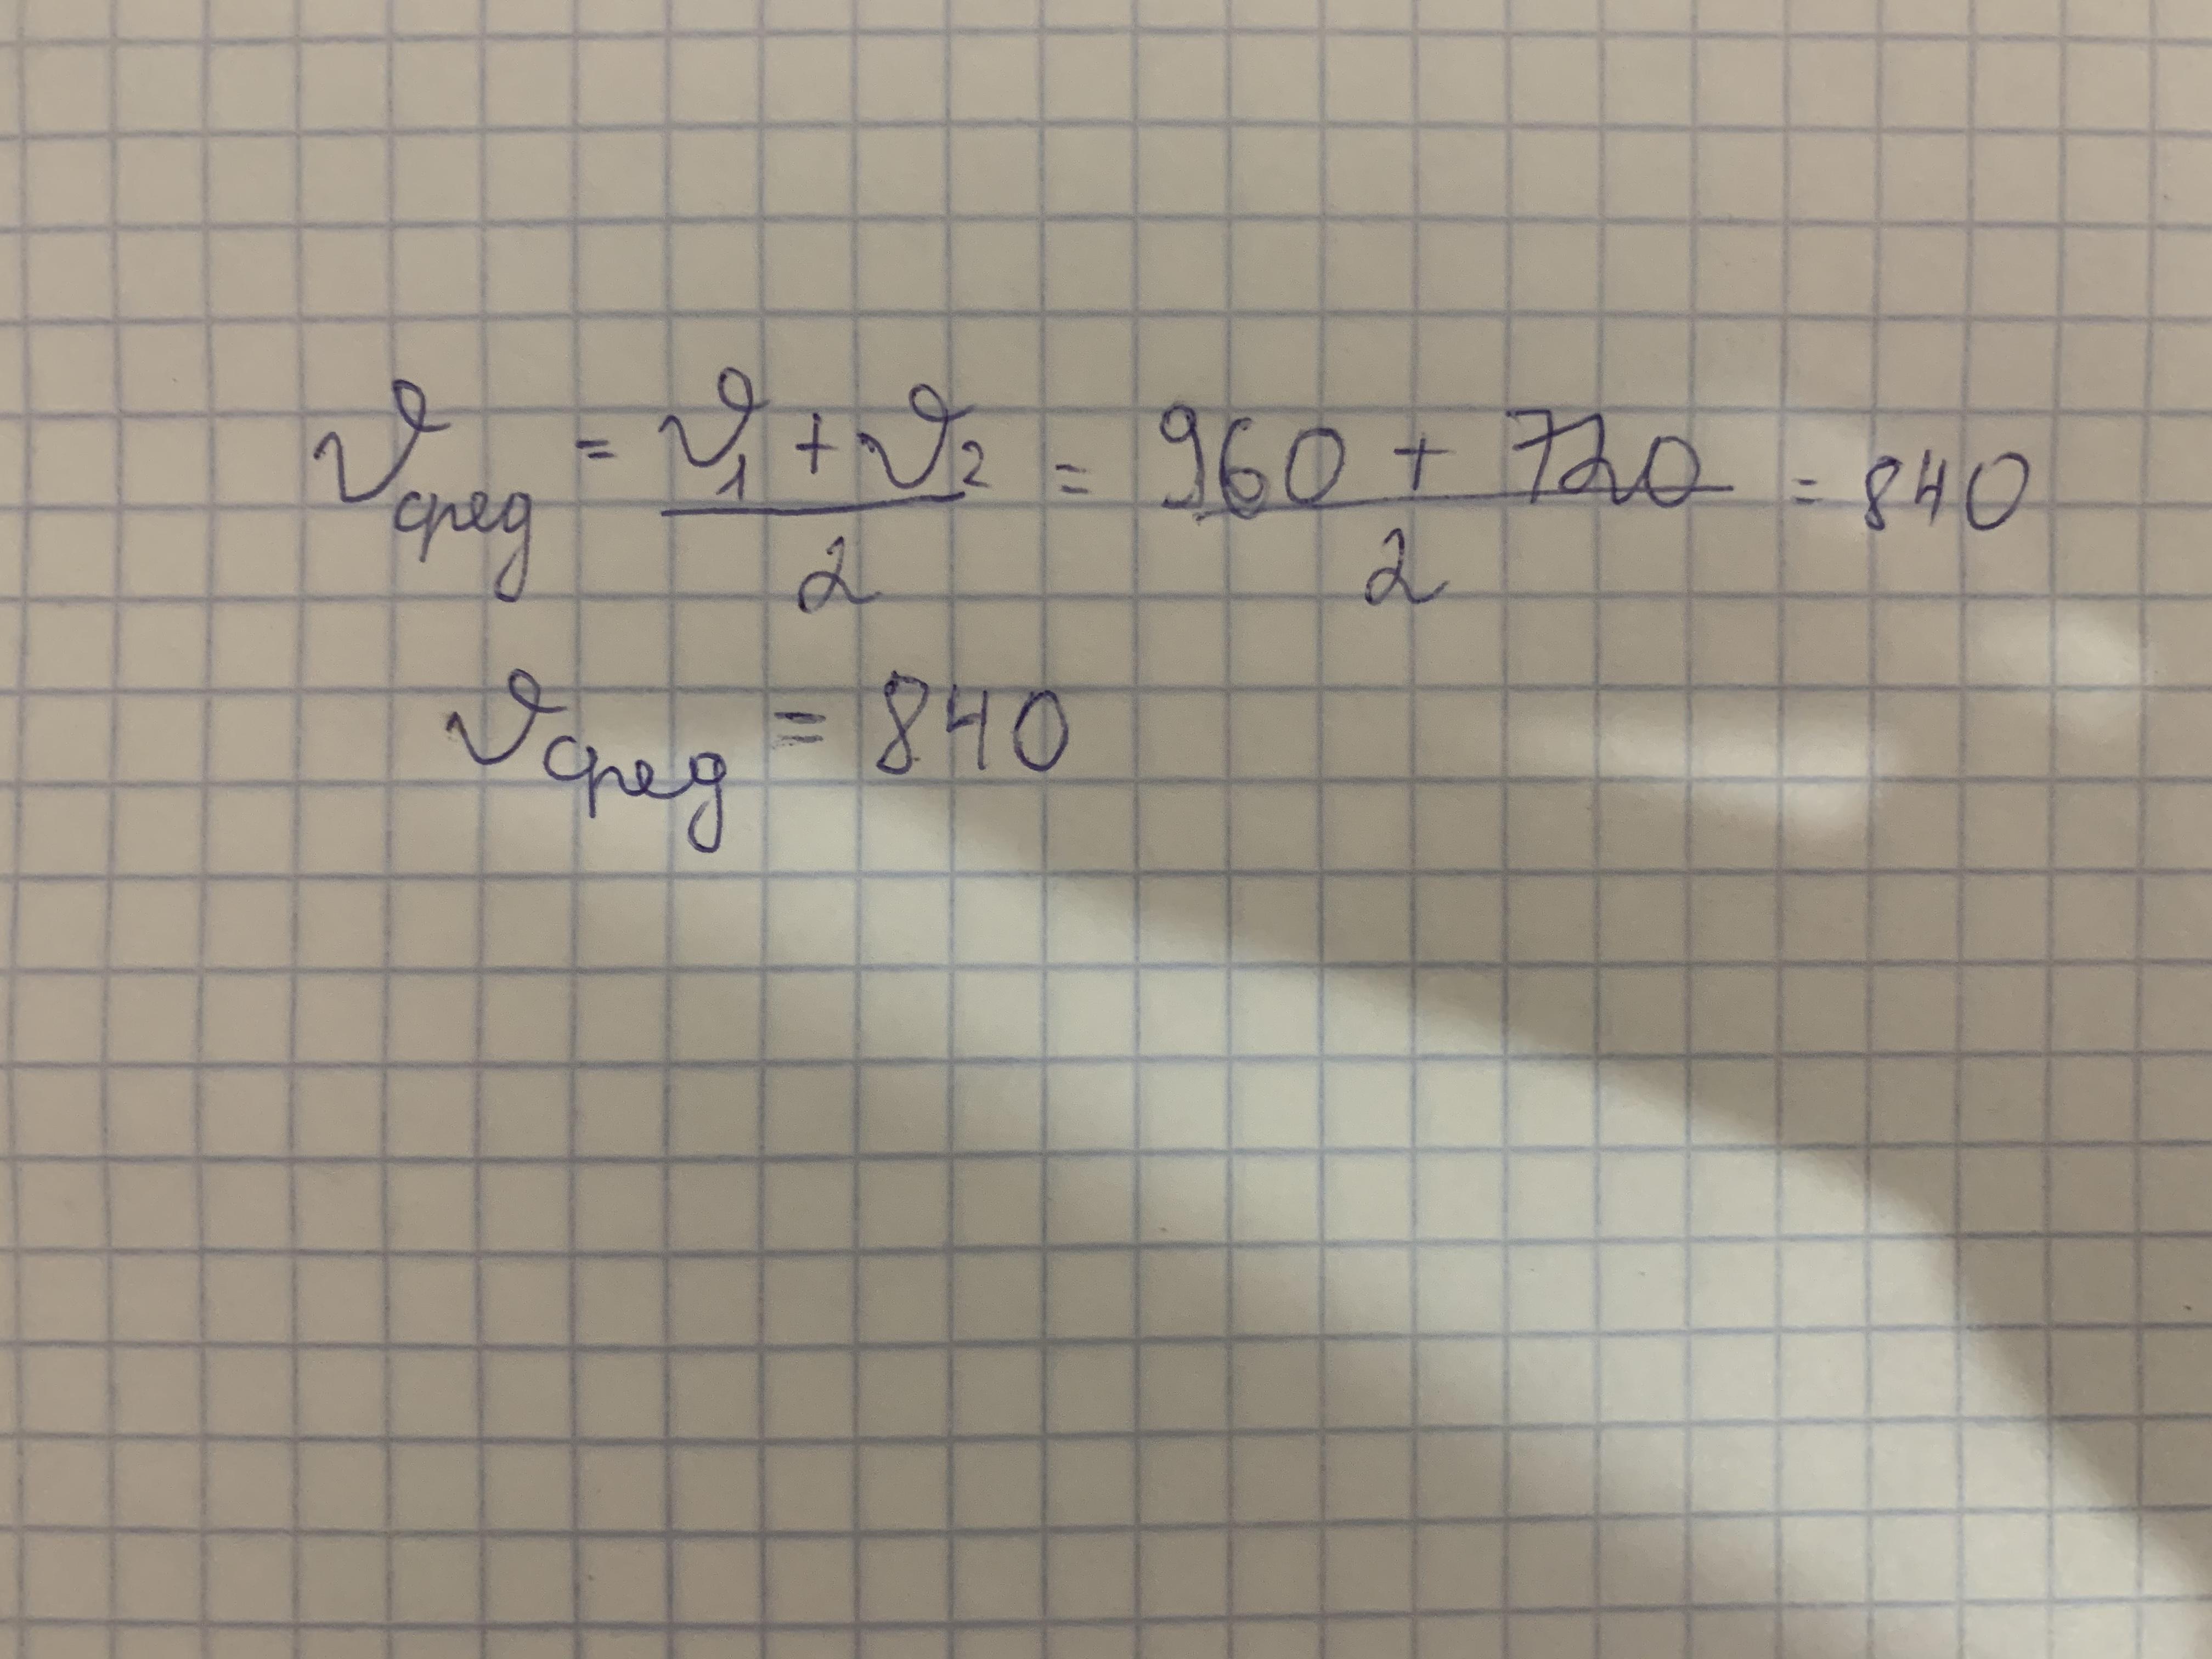 𝜗сред = (𝜗1 + 𝜗2)/2 = (960 + 720)/2 = 840
𝜗сред = 840